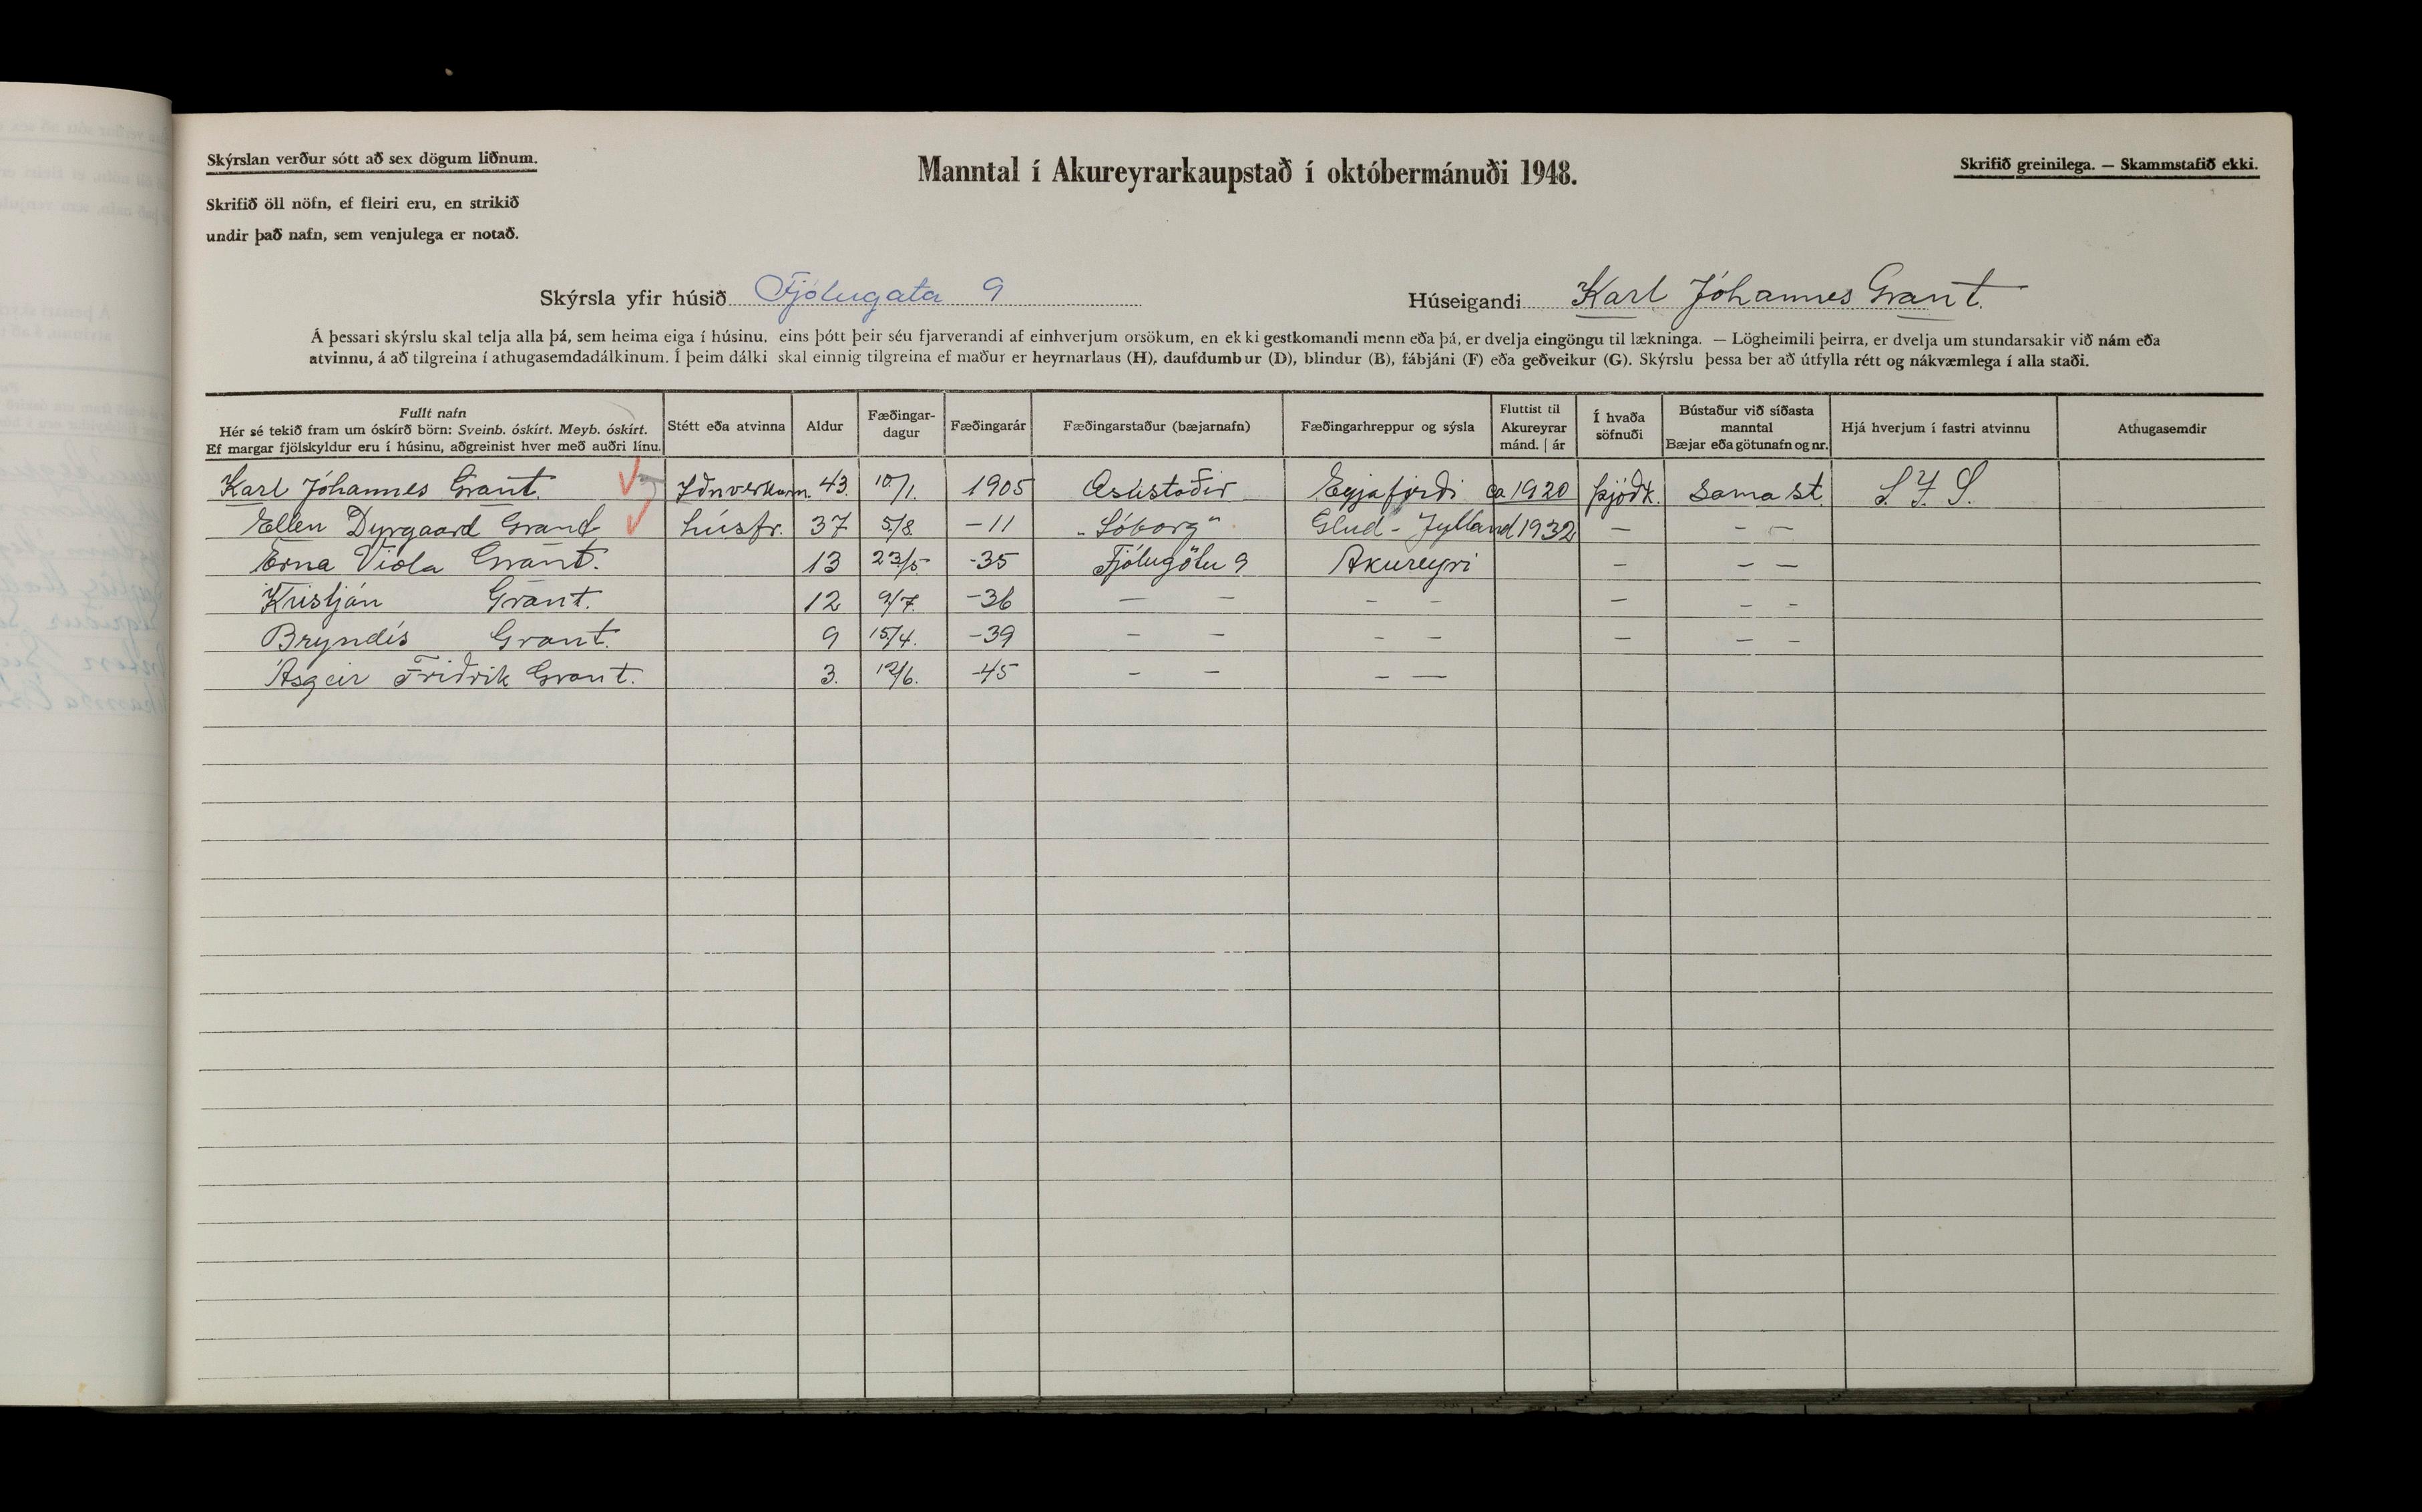 Skýrslan verður sótt að sex dögum liðnum.
Skrifið öll nöfn, ef fleiri eru, en strikið
undir það nafn, sem venjulega er notað.
Manntal í Akureyrarkaupstað í októbermánuði 1948.
Skrifið greinilega. — Skammstafið ekki.
Skýrsla yfir húsið Fjólugata 9 Húseigandi Karl Jóhannes Grant.
Á þessari skýrslu skal telja alla þá, sem heima eiga í húsinu, eins þótt þeir séu fjarverandi af einhverjum orsökum, en ekki gestkomandi menn eða þá, er dvelja eingöngu til lækninga. — Lögheimili þeirra, er dvelja um stundarsakir við nám eða
atvinnu, á að tilgreina í athugasemdadálkinum. Í þeim dálki skal einnig tilgreina ef maður er heyrnarlaus (H), daufdumbur (D), blindur (B), fábjáni (F) eða geðveikur (G). Skýrslu þessa ber að útfylla rétt og nákvæmlega í alla staði.
Fullt nafn Hér sé tekið fram um óskírð börn: Sveinb. óskírt. Meyb. óskírt. Ef margar fjölskyldur eru í húsinu, aðgreinist hver með auðri línu. Stétt eða atvinna Aldur Fæðingar-dagur Fæðingarár Fæðingarstaður (bæjarnafn) Fæðingarhreppur og sýsla Fluttist til Akureyrar mánd. | ár Í hvaða söfnuði Bústaður við síðasta manntal Bæjar eða götunafn og nr. Hjá hverjum í fastri atvinnu Athugasemdir
Karl Jóhannes Grant. Iðnverkam. 43. 10/1. 1905 Ásústaðir Eyjafirði ca 1920 þjóðk. Sama st. S. Í. S.
Ellen Dyrgaard Grant húsfr. 37 5/8. -11 "Sóborg" Glud - Jylland 1932 — — —
Erna Viola Grant. 13 23/5 -35 Fjólugötu 9 Akureyri — — —
Kristján Grant. 12 9/7. -36 — — — — — — —
Bryndís Grant. 9 15/4. -39 — — — — — — —
Ásgeir Friðrik Grant. 3. 12/6. -45 — — — —